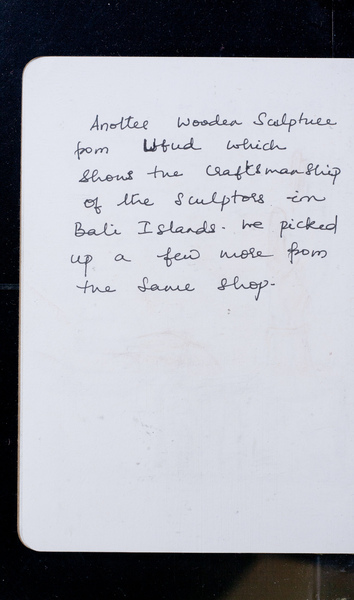 Another Wooden Sculpture
from Ubud which
shows the craftsmanship
of the sculptors in
Bali Islands. We picked
up a few more from
the same shop.